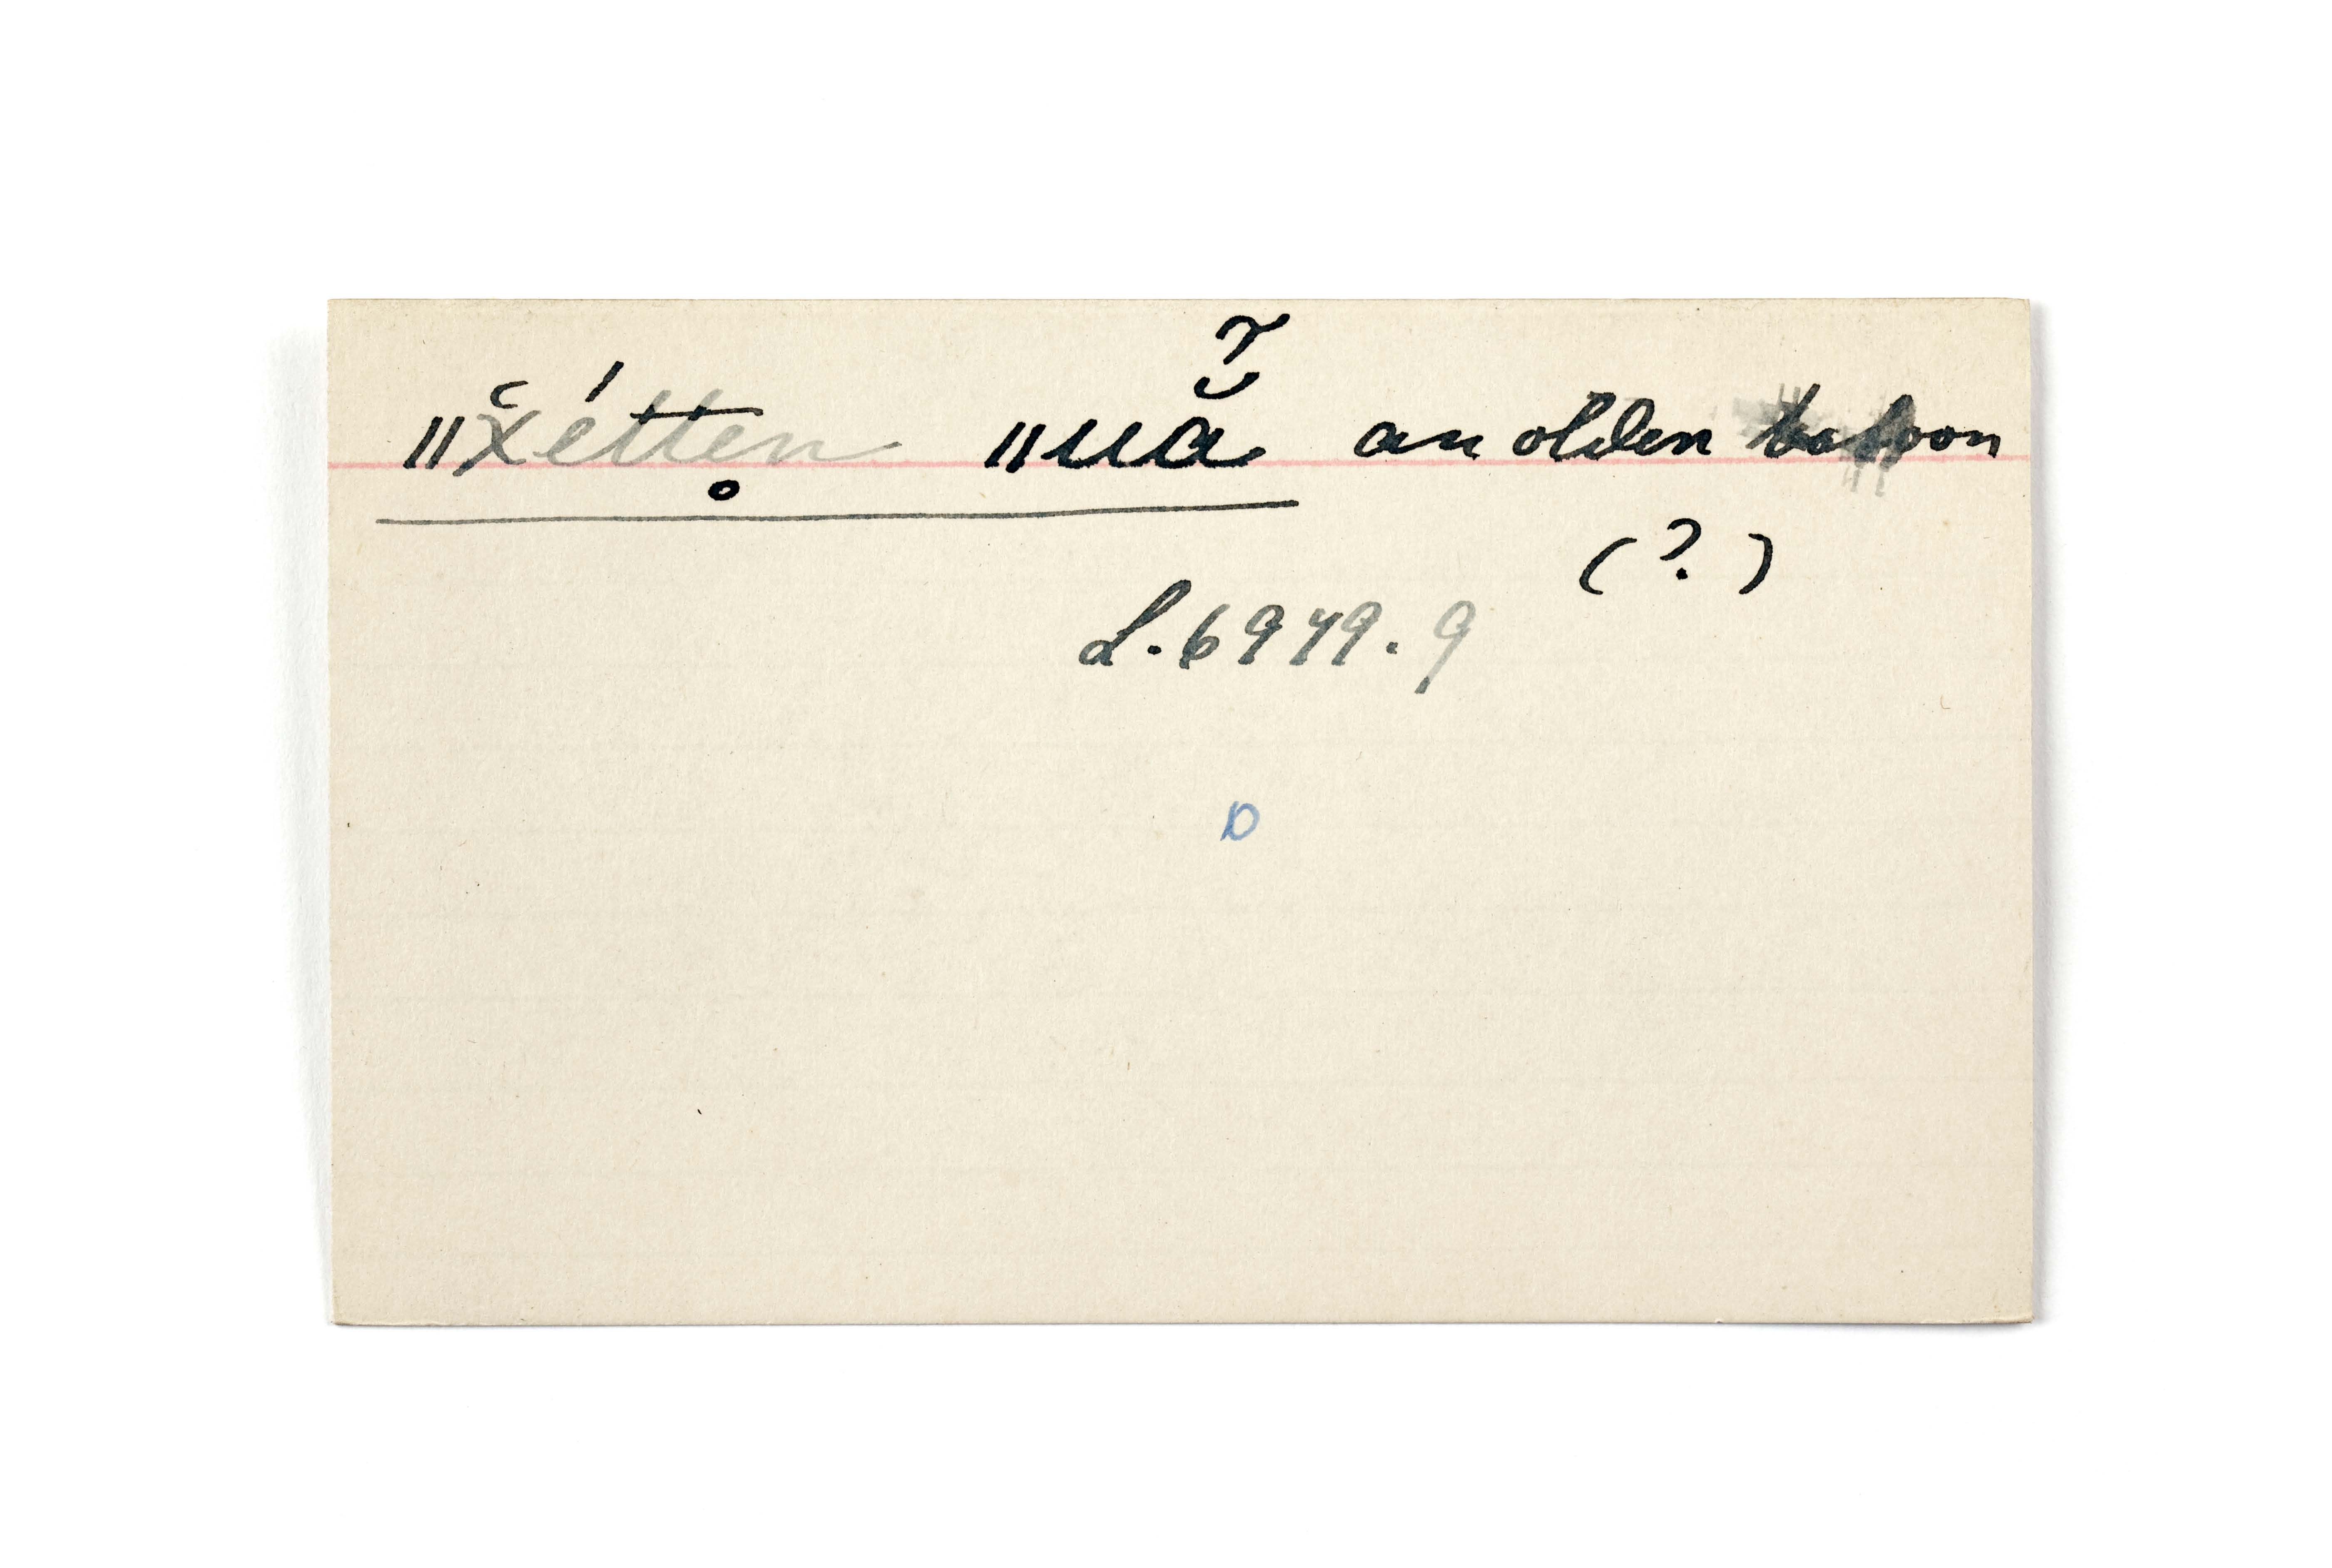 ǁx̌éttẹn ǁuã̆ an olden baboon
(?)
L.6979.9
D